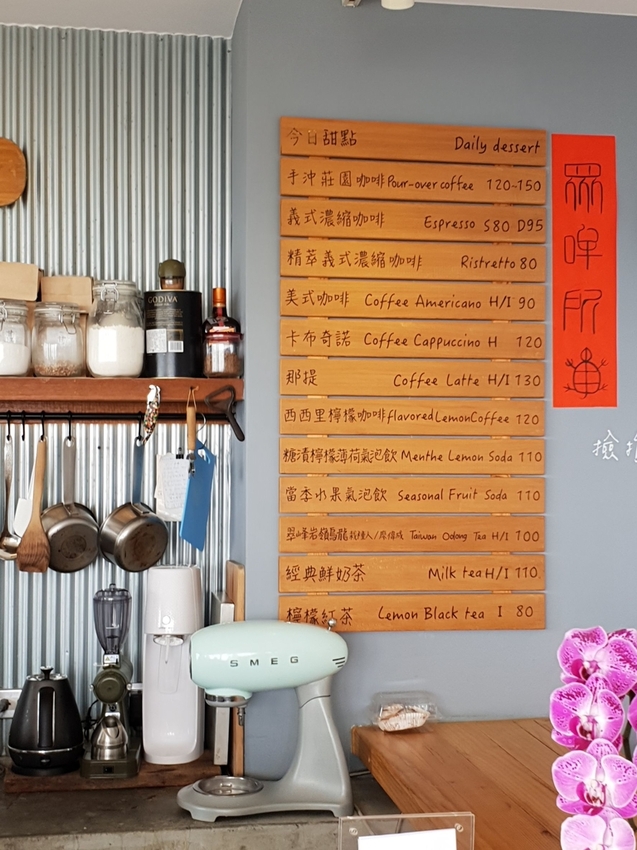 今日甜點 Daily dessert
手沖莊園咖啡 Pour-over coffee 120~150
義式濃縮咖啡 Espresso S80 D95
精萃義式濃縮咖啡 Ristretto 80
美式咖啡 Coffee Americano H/I 90
卡布奇諾 Coffee Cappuccino H 120
那提 Coffee Latte H/I 130
西西里檸檬咖啡 flavored Lemon Coffee 120
糖漬檸檬薄荷氣泡飲 Menthe Lemon Soda 110
當季水果氣泡飲 Seasonal Fruit Soda 110
翠峰岩嶺烏龍 Taiwan Oolong Tea H/I 100
經典鮮奶茶 Milk tea H/I 110
檸檬紅茶 Lemon Black tea I 80
GODIVA
SMEG
撿